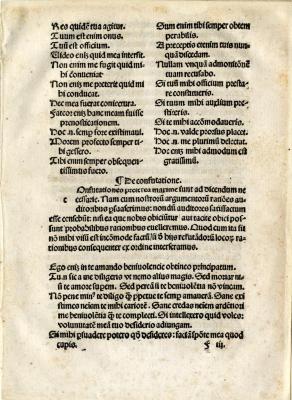 Res quidē tua agitur.
Tuum est enim onus.
Tuū est officium.
Video eniȝ quid mea intersit.
Non enim me fugit quid mi
bi conueniat
Non eniȝ me preterit quid mi
bi conducat.
Hoc mea fuerat coniectura.
Fateor eniȝ hanc meam fuisse
prenosticationem.
Hoc .n. semp fore existimaui.
Morem profecto semper ti
bi gessero.
Tibi enim semper obsequen
tissimus fueto.
Sum enim tibi semper obtem
perabilis.
A preceptis etenim tuis nun
quā discedam.
Nullam vnquā admonitiōnē
tuam recusabo.
Si tuum mihi officium presta
re constitueris.
Si tuum mihi auxlium prest
iteris.
Si te mihi accōmodaueris.
Hoc .n. valde prosius placet.
Hoc .n. me plurimū delectat.
Hoc eniȝ mihi admodum est
grauissimū.
¶ De confutatione.
Confutationes preterea maxime sunt ad discendum ne
cessarie. Nam cum nostrorū argumentorū ratiōes
auditoribus
esse censebūt: nisi ea que nobis obiiciūtur aut tacite obici pos
sunt probabilibus rationibus euellerimus. Quod cum ita sit
nō mihi visū est incōmode factū
tionibus consequenter ex ordine inseramus.
Ego eniȝ in te amando beniuolentie obtineo principatum.
Tu .n. sic a me diligeris vt nemo alius magis. Sed motiar ni
si te amore supem. Sed peream si te beniuolētia nō vincam.
Nō pene min⁹ te diligo ꝙ ppetue te semp amauerā. Sane exi
stimes neiem te mihi cariorē. Sane credas neiem ardētiori
me beniuolētia ꝙ te complecti. Si intellexero quid voles:
voluntatē meā tuo desiderio adiungam.
Si mihi psuadere potero qđ desideres: faciā spōte mea quod
cupis. f iii